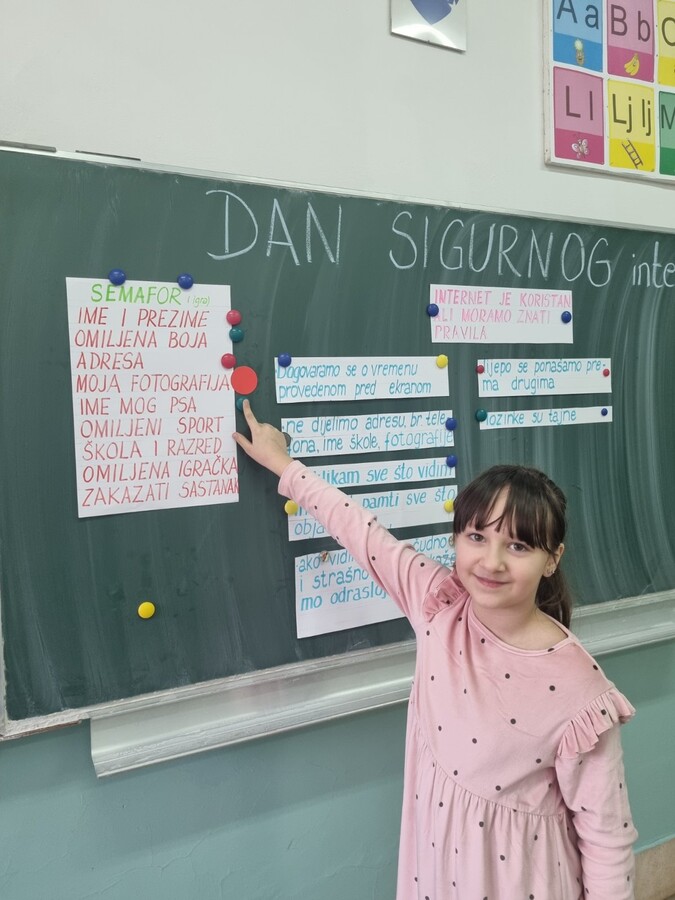 Aa Bb
Ll Lj lj
DAN SIGURNOG inte
SEMAFOR (igra)
IME I PREZIME
OMILJENA BOJA
ADRESA
MOJA FOTOGRAFIJA
IME MOG PSA
OMILJENI SPORT
ŠKOLA I RAZRED
OMILJENA IGRAČKA
ZAKAZATI SASTANAK
INTERNET JE KORISTAN
ALI MORAMO ZNATI
PRAVILA
Dogovaramo se o vremenu
provedenom pred ekranom
ne dijelimo adresu, br. tele
ona, ime škole, fotografije
likam sve što vidim
pamti sve što
obja
ako vidi čudno
i strašno
mo odrasloj
lijepo se ponašamo pre-
ma drugima
lozinke su tajne